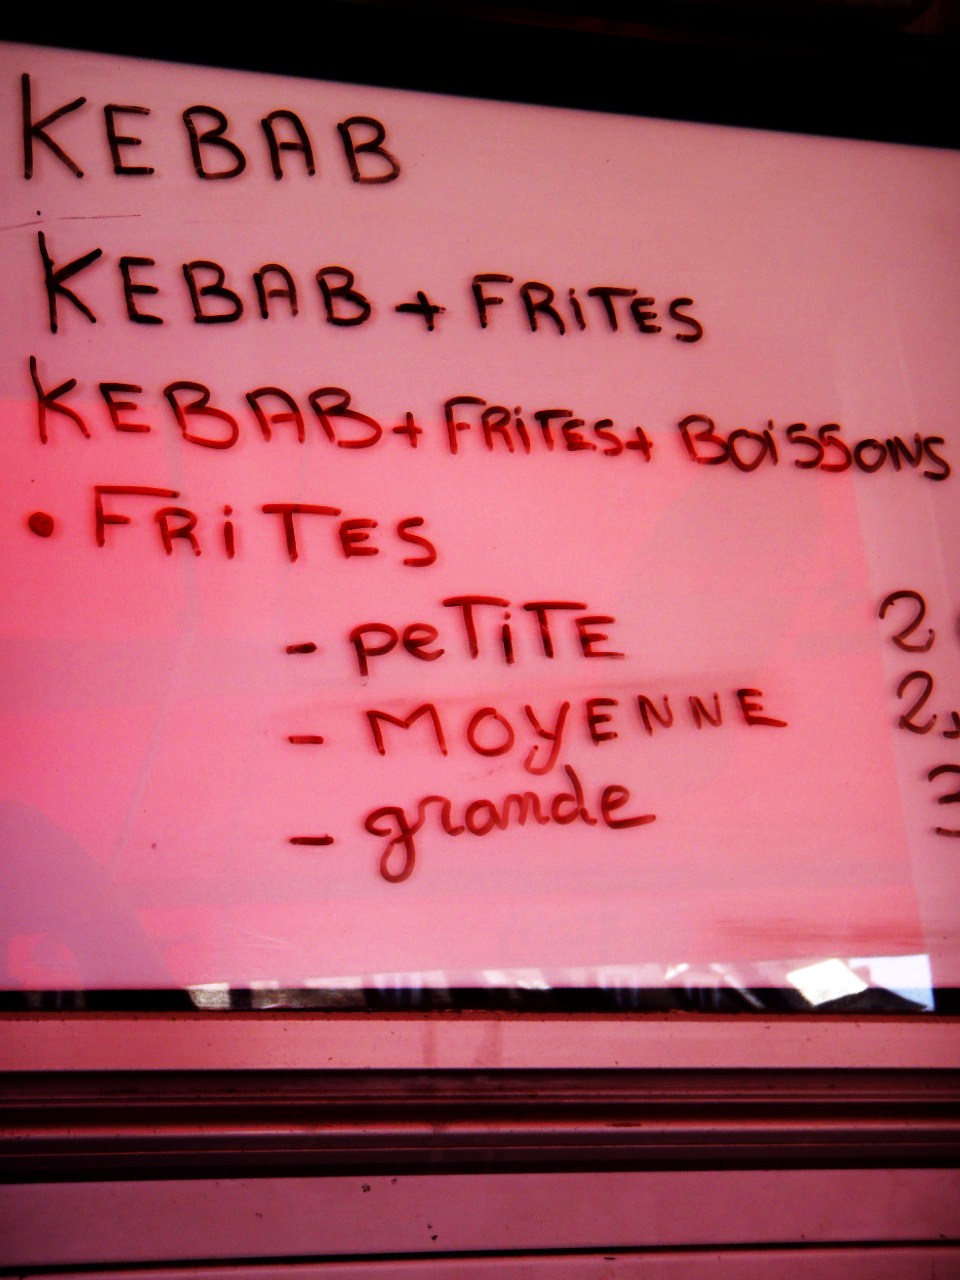 KEBAB
KEBAB + FRiTES
KEBAB + FRiTES + BOiSSONS
• FRiTES
- peTiTE 2
- MOYENNE 2,
- grande 3